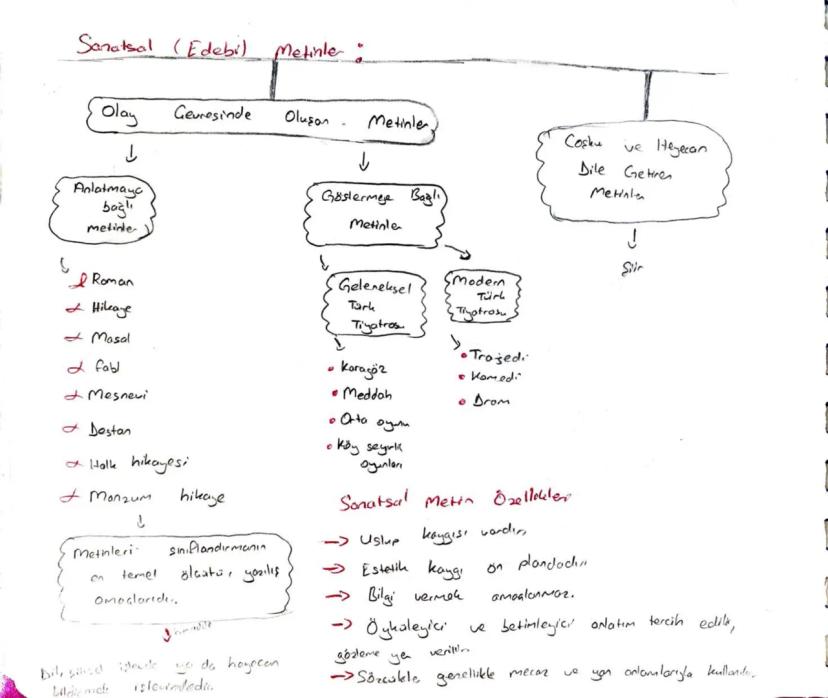 Sanatsal (Edebi) Metinler:
Olay Çevresinde Oluşan Metinler
Coşku ve Heyecan
Dile Getiren
Metinler
Şiir
Anlatmaya
bağlı
metinler
Roman
Hikaye
Masal
Fabl
Mesnevi
Destan
Halk hikayesi
Manzum hikaye
Metinleri sınıflandırmanın
en temel ölçütü, yazılış
amaçlarıdır.
Göstermeye Bağlı
Metinler
Geleneksel
Türk
Tiyatrosu
Karagöz
Meddah
Orta oyunu
Köy seyirlik
oyunları
Modern
Türk
Tiyatrosu
Trajedi
Komedi
Dram
Sanatsal Metin Özellikleri
→ Uslup kaygısı vardır.
→ Estetik kaygı ön plandadır.
→ Bilgi vermek amaçlanmaz.
→ Öyküleyici ve betimleyici anlatım tercih edilir,
gözleme yer verilir.
→ Sözcükler genellikle mecaz ve yan anlamlarıyla kullanılır.
Dil, şiirsel işlevde ya da heyecan
işlevindedir.